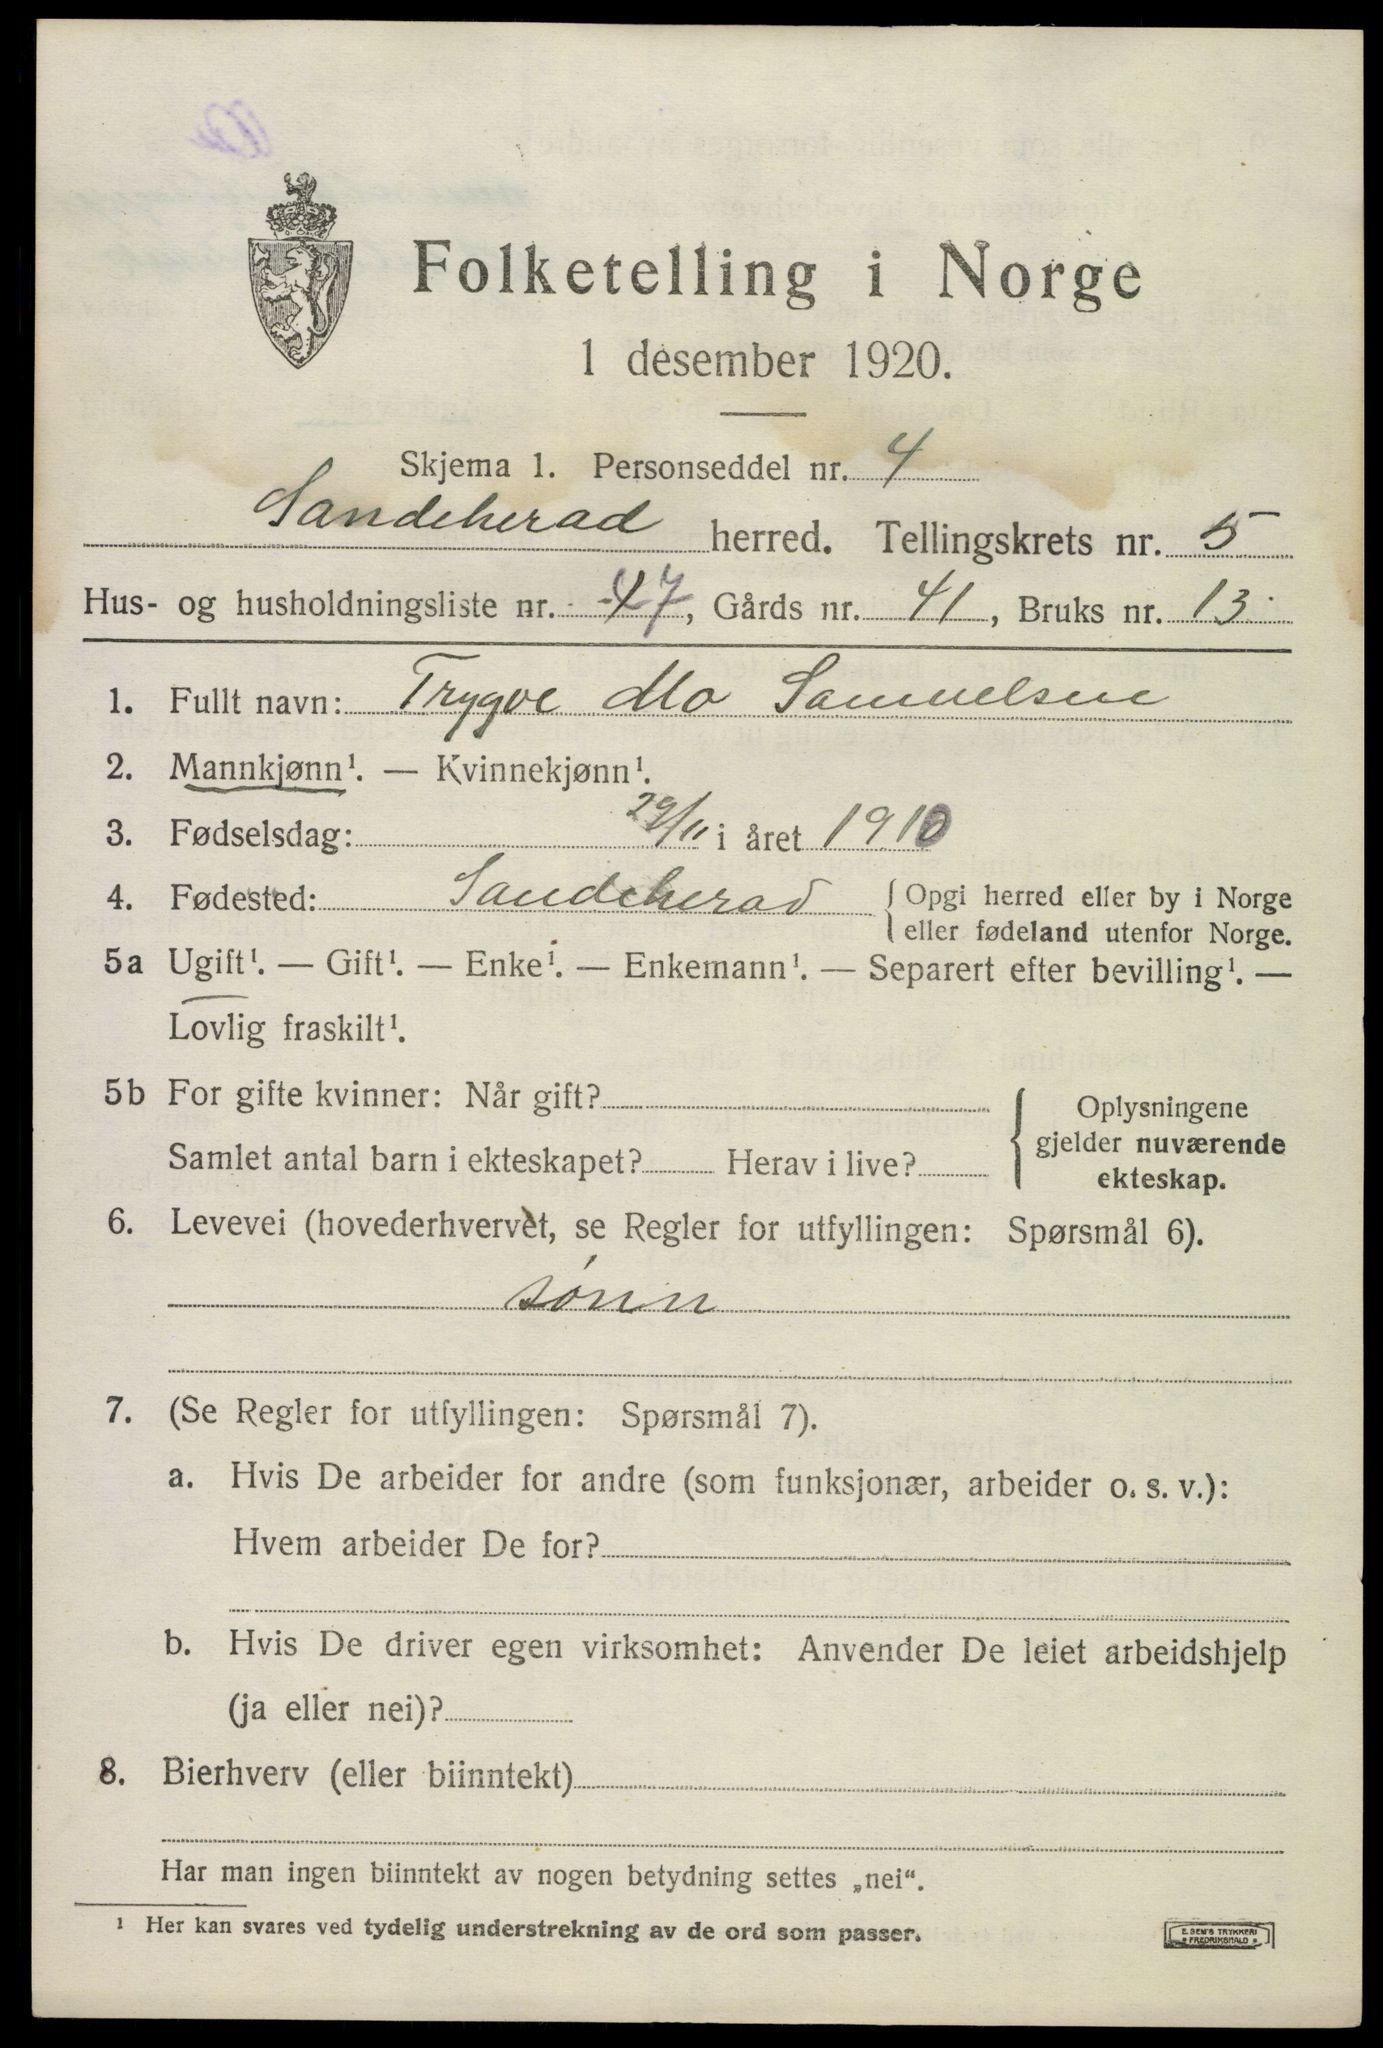 Folketelling i Norge
1 desember 1920.
Skjema 1. Personseddel nr. 4
Sandeherad herred. Tellingskrets nr. 5
Hus- og husholdningsliste nr. 47, Gårds nr. 41, Bruks nr. 13
1. Fullt navn: Trygve Mo Samuelsen
2. Mannkjønn¹. — Kvinnekjønn¹.
3. Fødselsdag: 29/11 i året 1910
4. Fødested: Sandeherad { Opgi herred eller by i Norge
eller fødeland utenfor Norge.
5a Ugift¹. — Gift¹. — Enke¹. — Enkemann¹. — Separert efter bevilling¹. —
Lovlig fraskilt¹.
5b For gifte kvinner: Når gift?
Samlet antal barn i ekteskapet? Herav i live?
Oplysningene
gjelder nuværende
ekteskap.
6. Levevei (hovederhvervet, se Regler for utfyllingen: Spørsmål 6).
sønn
7. (Se Regler for utfyllingen: Spørsmål 7).
a. Hvis De arbeider for andre (som funksjonær, arbeider o. s. v.):
Hvem arbeider De for?
b. Hvis De driver egen virksomhet: Anvender De leiet arbeidshjelp
(ja eller nei)?
8. Bierhverv (eller biinntekt)
Har man ingen biinntekt av nogen betydning settes „nei“.
¹ Her kan svares ved tydelig understrekning av de ord som passer.
E. SEM'S TRYKKERI
FREDRIKSHALD